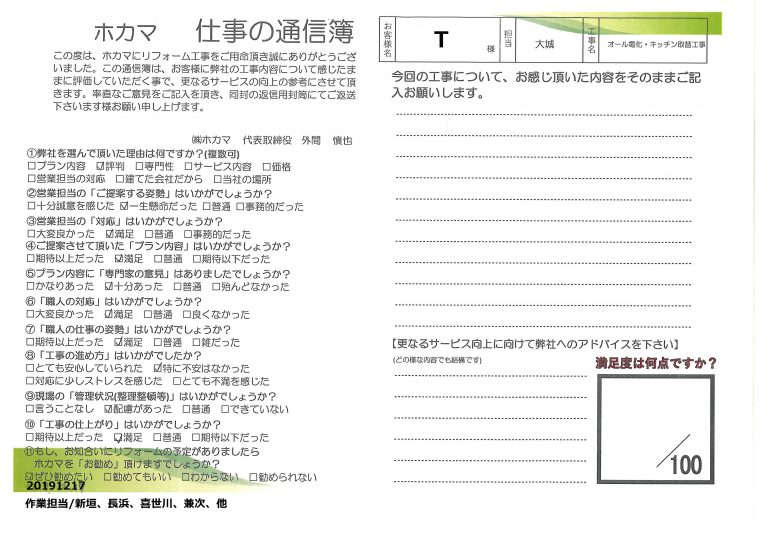 ホカマ 仕事の通信簿
この度は、ホカマにリフォーム工事をご用命頂き誠にありがとうござ
いました。この通信簿は、お客様に弊社の工事内容について感じたま
まに評価していただく事で、更なるサービスの向上の参考にさせて頂
きます。率直なご意見をご記入を頂き、同封の返信用封筒にてご返送
下さいます様お願い申し上げます。
㈱ホカマ 代表取締役 外間 慎也
①弊社を選んで頂いた理由は何ですか？(複数可)
□プラン内容 ☑評判 □専門性 □サービス内容 □価格
□営業担当の対応 □建てた会社だから □当社の場所
②営業担当の「ご提案する姿勢」はいかがでしょうか？
□十分誠意を感じた ☑一生懸命だった □普通 □事務的だった
③営業担当の「対応」はいかがでしょうか？
□大変良かった ☑満足 □普通 □事務的だった
④ご提案させて頂いた「プラン内容」はいかがでしょうか？
□期待以上だった ☑満足 □普通 □期待以下だった
⑤プラン内容に「専門家の意見」はありましたでしょうか？
□かなりあった ☑十分あった □普通 □殆んどなかった
⑥「職人の対応」はいかがでしょうか？
□大変良かった ☑満足 □普通 □良くなかった
⑦「職人の仕事の姿勢」はいかがでしょうか？
□期待以上だった ☑満足 □普通 □雑だった
⑧「工事の進め方」はいかがでしたか？
□とても安心していられた ☑特に不安はなかった
□対応に少しストレスを感じた □とても不満を感じた
⑨現場の「管理状況(整理整頓等)」はいかがでしょうか？
□言うことなし ☑配慮があった □普通 □できていない
⑩「工事の仕上がり」はいかがでしょうか？
□期待以上だった ☑満足 □普通 □期待以下だった
⑪もし、お知合いにリフォームの予定がありましたら
ホカマを「お勧め」頂けますでしょうか？
☑ぜひ勧めたい □勧めてもいい □わからない □勧められない
20191217
作業担当/新垣、長浜、喜世川、兼次、他
お客様名 T 様 担当 大城 工事名 オール電化・キッチン取替工事
今回の工事について、お感じ頂いた内容をそのままご記
入お願いします。
【更なるサービス向上に向けて弊社へのアドバイスを下さい】
(どの様な内容でも結構です)
満足度は何点ですか？
/100